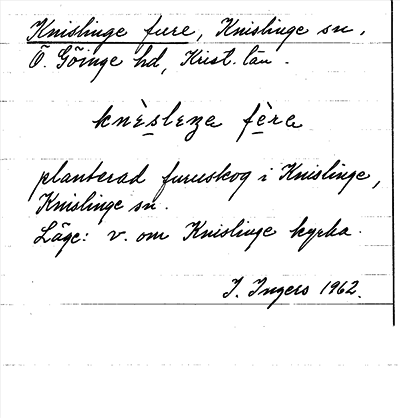 Knislinge fure, Knislinge sn,
Ö. Göinge hd, Krist. län.
knèslenge fère
planterad furuskog i Knislinge,
Knislinge sn.
Läge: v. om Knislinge kyrka.
I. Ingers 1962.